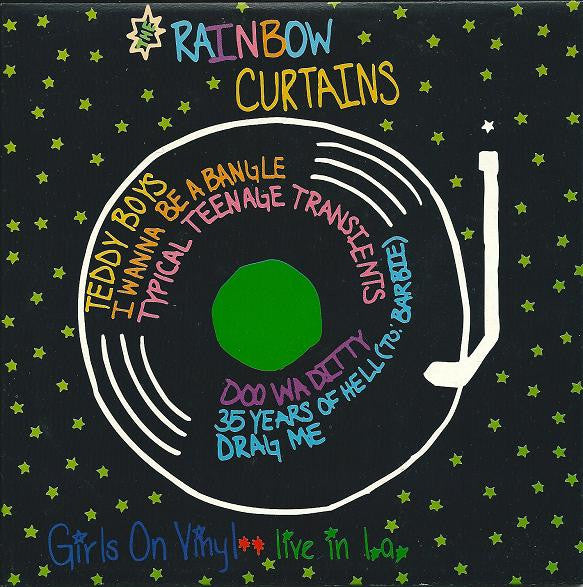 THE RAINBOW
CURTAINS
TEDDY BOYS
I WANNA BE A BANGLE
TYPICAL TEENAGE TRANSIENTS
DOO WA DITTY
35 YEARS OF HELL (TO: BARBIE)
DRAG ME
Girls On Vinyl** live in L.A.